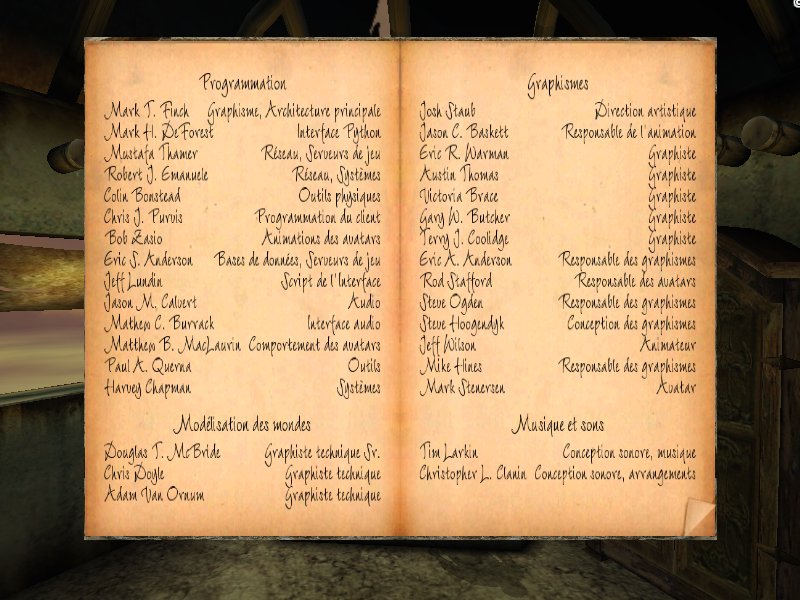 Programmation
Mark T. Finch Graphisme, Architecture principale
Mark H. DeForest Interface Python
Mustafa Thamer Réseau, Serveurs de jeu
Robert J. Emanuele Réseau, Systèmes
Colin Bonstead Outils physiques
Chris J. Purvis Programmation du client
Bob Zasio Animations des avatars
Eric S. Anderson Bases de données, Serveurs de jeu
Jeff Lundin Script de l'Interface
Jason M. Calvert Audio
Mathew C. Burrack Interface audio
Matthew B. MacLaurin Comportement des avatars
Paul A. Querna Outils
Harvey Chapman Systèmes
Modélisation des mondes
Douglas T. McBride Graphiste technique Sr.
Chris Doyle Graphiste technique
Adam Van Ornum Graphiste technique
Graphismes
Josh Staub Direction artistique
Jason C. Baskett Responsable de l'animation
Eric R. Warman Graphiste
Austin Thomas Graphiste
Victoria Brace Graphiste
Gary W. Butcher Graphiste
Terry J. Coolidge Graphiste
Eric A. Anderson Responsable des graphismes
Rod Stafford Responsable des avatars
Steve Ogden Responsable des graphismes
Steve Hoogendyk Conception des graphismes
Jeff Wilson Animateur
Mike Hines Responsable des graphismes
Mark Stenersen Avatar
Musique et sons
Tim Larkin Conception sonore, musique
Christopher L. Clanin Conception sonore, arrangements